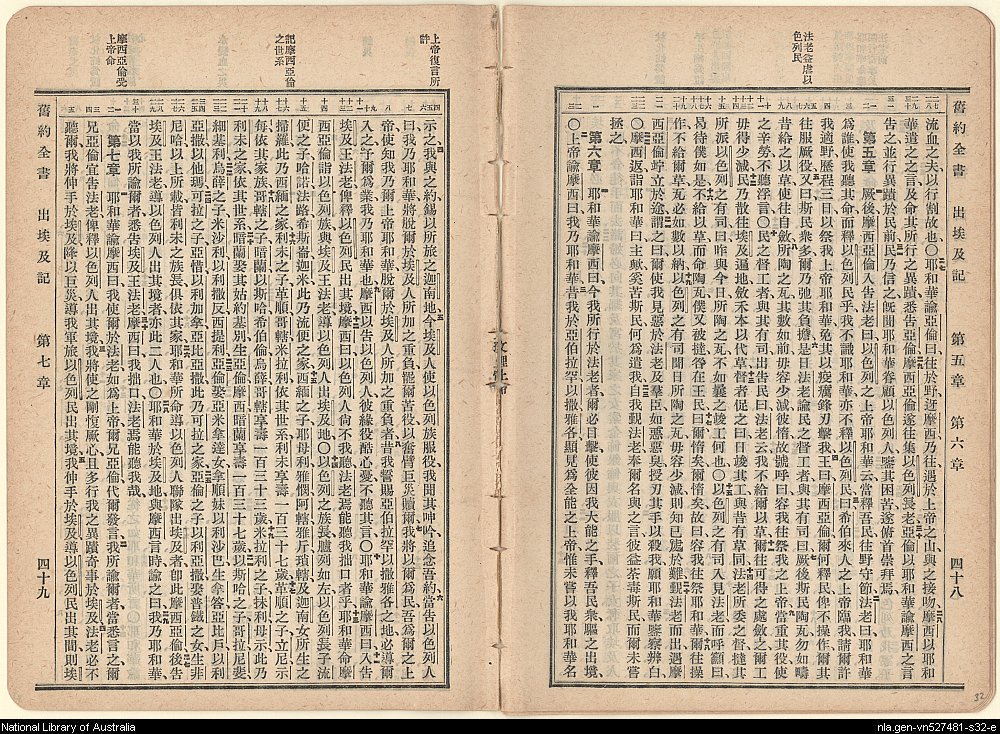 法老益虐以
色列民
舊約全書　出埃及記　第五章　第六章　四十八
流血之夫以行割故也〇耶和華諭亞倫曰往於野迓摩西乃往遇於上帝之山與之接吻摩西以耶和
華遣之之言及命其所行之異蹟悉告亞倫摩西亞倫遂往集以色列長老亞倫以耶和華諭摩西之言
告之並行異蹟於民前民乃信之既聞耶和華眷顧以色列人鑒其困苦遂俯首崇拜焉
第五章　厥後摩西亞倫入告法老曰以色列之上帝耶和華云當釋吾民往野守節法老曰耶和華
爲誰使我聽其命而釋以色列民乎我不識耶和華亦不釋以色列民曰希伯來人之上帝臨我請爾許
我適野歷程三日以祭我上帝耶和華免其以疫癘鋒刃擊我王曰摩西亞倫爾何釋民俾不操作爾其
往服厥役又曰斯民衆多爾乃弛其負擔是日法老諭民之督工者與其有司曰厥後斯民陶瓦勿如疇
昔給之以草使往自斂所陶之瓦其數如前毋容少減彼惰故號呼曰容我往祭我之上帝當重其役使
之辛勞不聽浮言〇民之督工者與其有司出告民曰法老云我不給爾以草爾往可得之處斂之爾工
毋得少減民乃散往埃及遍地斂禾本以代草督者促之曰日竣其工與昔有草同法老所委之督撻其
所派以色列之有司曰昨與今日所陶之瓦不如曩之竣工何也〇以色列之有司入見法老而呼籲曰
曷待僕如是不給以草而命陶瓦僕又被撻咎在王民曰爾惰矣爾惰矣故曰容我往祭耶和華爾往操
作不給爾草瓦必如數以納以色列之有司聞日所陶之瓦毋容少減則知已處於難覲法老而出遇摩
西亞倫竚立於途謂之曰爾使我見惡於法老及羣臣如惡惡臭授刃其手以殺我願耶和華鑒察辨白
〇摩西返詣耶和華曰主歟奚苦斯民何爲遣我自我覲法老奉爾名與之言彼益荼毒斯民而爾未嘗
拯之
第六章　耶和華諭摩西曰今我所行於法老者爾必目擊使彼因我大能之手釋吾民衆驅之出境
〇上帝諭摩西曰我乃耶和華昔我於亞伯拉罕以撒雅各顯見爲全能之上帝惟未嘗以我耶和華名
上帝復言所
許
記摩西亞倫
之世系
摩西亞倫受
上帝命
示之我與之約錫以所旅之迦南地今埃及人使以色列族服役我聞其呻吟追念吾約當告以色列人
曰我乃耶和華將脫爾於埃及人所加之重負罷爾苦役以奮臂巨災贖爾我將以爾爲民吾爲爾之上
帝使知我乃爾上帝耶和華脫爾於埃及人所加之重負者昔我誓賜亞伯拉罕以撒雅各之地必導爾
入之予爾爲業我乃耶和華也摩西以告以色列人彼緣役酷心憂不聽其言〇耶和華諭摩西曰入告
埃及王法老俾釋以色列民出其境摩西曰以色列人尚不我聽法老焉能聽我拙口者乎耶和華命摩
西亞倫詣以色列族與埃及王法老導以色列人出埃及地〇以色列之族長臚列如左以色列長子流
便之子哈諾法路希斯崙迦米此乃流便之家西緬之子耶母利雅憫阿轄雅斤瑣轄及迦南女所生之
掃羅此乃西緬之家利未之子革順哥轄米拉利依其世系利未享壽一百三十七歲革順之子立尼示
每依其家族哥轄之子暗蘭以斯哈希伯倫烏薛哥轄享壽一百三十三歲米拉利之子抹利母示此乃
利未之家依其世系暗蘭娶其姑約基別生亞倫摩西暗蘭享壽一百三十七歲以斯哈之子哥拉尼斐
細基利烏薛之子米沙利以利撒反西提利亞倫娶亞米拿達女拿順妹以利沙巴生拿答亞比戶以利
亞撒以他瑪可拉之子亞惜以利加拿亞比亞撒此乃可拉之家亞倫之子以利亞撒娶普鐵之女生非
尼哈以上所載皆利未之族長俱依其家耶和華所命導以色列人聯隊出埃及者卽此摩西亞倫後告
埃及王法老導以色列人出其境者亦此二人也〇耶和華於埃及地與摩西言時諭之曰我乃耶和華
當以我所諭爾者悉告埃及王法老摩西曰我拙口法老焉能聽我哉
第七章　耶和華諭摩西曰我使爾於法老如爲上帝爾兄亞倫代爾發言我所諭爾者當悉言之爾
兄亞倫宜告法老俾釋以色列人出其境我將使之剛愎厥心且多行我之異蹟奇事於埃及法老必不
聽爾我將伸手於埃及降以巨災導我軍旅以色列民出其境我伸手於埃及導以色列民出其間則埃
舊約全書　出埃及記　第七章　四十九
32
National Library of Australia
nla.gen-vn527481-s32-e